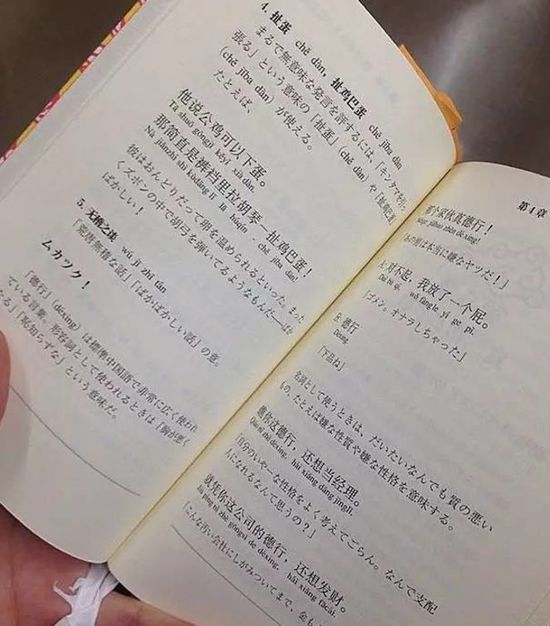 4. 扯蛋 chě dàn, 扯鸡巴蛋 chě jība dàn
まるで無意味な発言を許するには、「キンタマを引っ
張る」という意味の「扯蛋」(chě dàn) や「扯鸡巴蛋」
(chě jība dàn) が使える。
たとえば、
他说公鸡可以下蛋。
Tā shuō gōngjī kěyǐ xià dàn.
那简直是裤裆里拉胡琴—扯鸡巴蛋！
Nà jiǎnzhí shì kùdāng lǐ lā húqín, chě jība dàn!
彼はおんどりだって卵を温められるといった。まった
くズボンの中で胡弓を弾いてるようなもんだ—ばか
ばかしい！
5. 无稽之谈 wú jī zhī tán
「荒唐無稽な話」「ばかばかしい話」の意。
ムカック！
「徳行」(déxing) は標準中国語で非常に広く使われ
ている言葉。形容詞として使われるときは「胸が悪く
なる」「恥知らずな」という意味だ。
第4章
那个家伙真德行！
jiāhuo zhēn déxing!
は本当に嫌なヤツだ！」
对不起，我放了一个屁。
Duì bù qǐ, wǒ fàngle yí ge pì.
「ゴメン。オナラしちゃった」
B: 德行
Déxing.
「下品ね」
名詞として使うときは、だいたいなんでも質の悪い
もの、たとえば嫌な性質や嫌な性格を意味する。
瞧你这德行，还想当经理。
Qiáo nǐ zhè déxing, hái xiǎng dāng jīnglǐ.
「自分のいやーな性格をよく考えてごらん。なんで支配
人になれるなんて思うの？」
就凭你这公司的德行，还想发财。
Jiù píng nǐ zhè gōngsī de déxing, hái xiǎng fācái.
「こんな汚い会社にしがみついてまで、金も